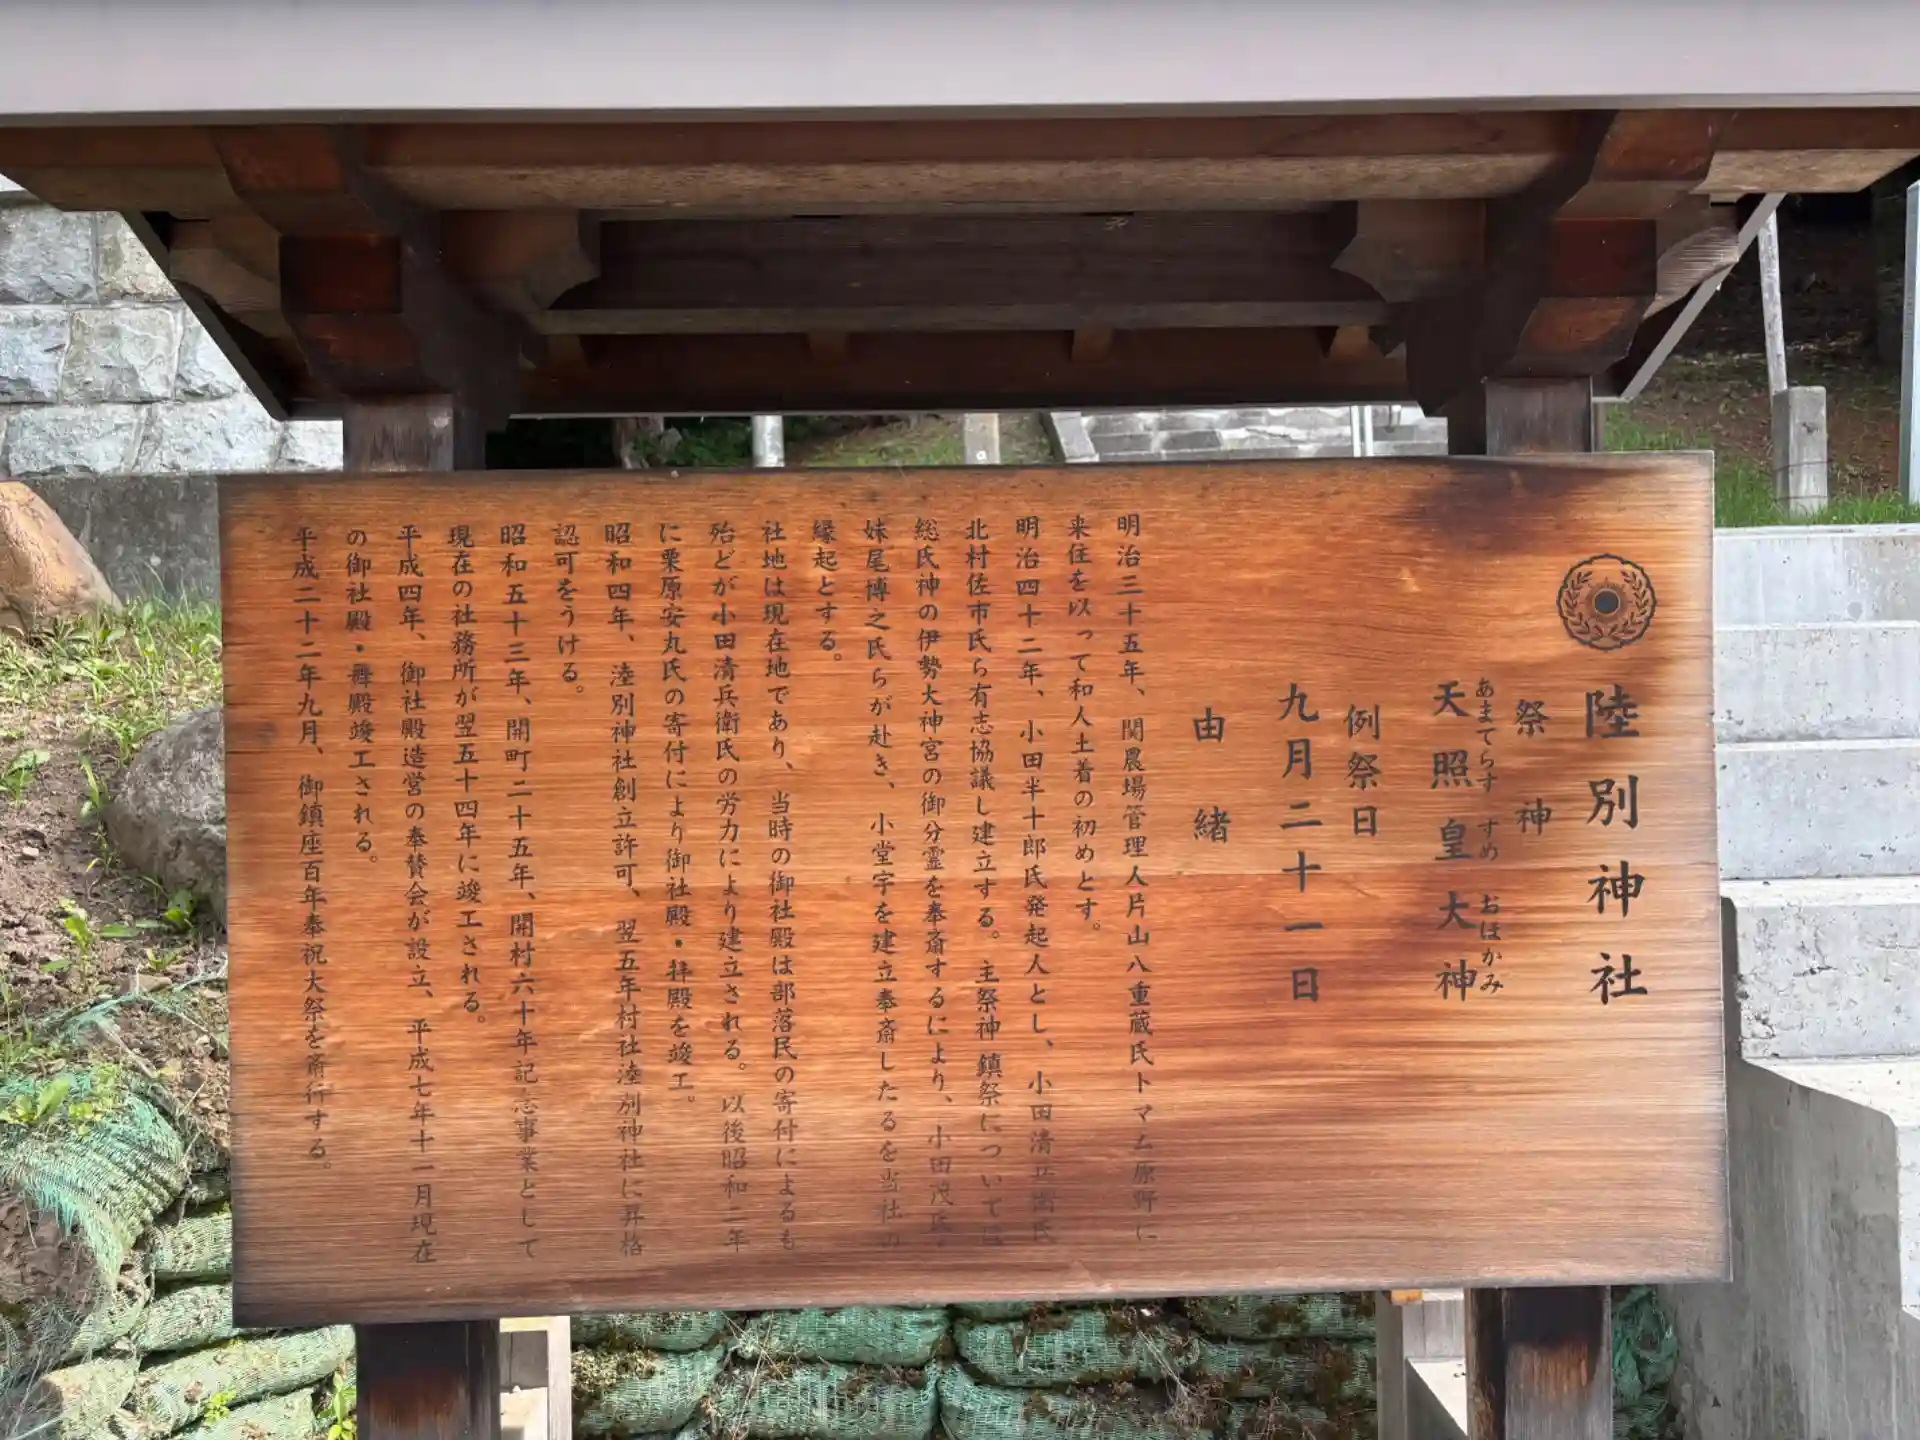 陸別神社
祭神
あまてらす すめ おほかみ
天照皇大神
例祭日
九月二十一日
由緒
明治三十五年、関農場管理人片山八重蔵氏トマム原野に
来住を以って和人土着の初めとす。
明治四十二年、小田半十郎氏発起人とし、小田清兵衛氏
北村佐市氏ら有志協議し建立する。主祭神鎮祭については
総氏神の伊勢大神宮の御分霊を奉斎するにより、小田茂氏、
妹尾博之氏らが赴き、小堂宇を建立奉斎したるを当社の
縁起とする。
社地は現在地であり、当時の御社殿は部落民の寄付によるも
殆どが小田清兵衛氏の労力により建立される。以後昭和二年
に栗原安丸氏の寄付により御社殿・拝殿を竣工。
昭和四年、陸別神社創立許可、翌五年村社陸別神社に昇格
認可をうける。
昭和五十三年、開町二十五年、開村六十年記念事業として
現在の社務所が翌五十四年に竣工される。
平成四年、御社殿造営の奉賛会が設立、平成七年十一月現在
の御社殿・舞殿竣工される。
平成二十二年九月、御鎮座百年奉祝大祭を斎行する。